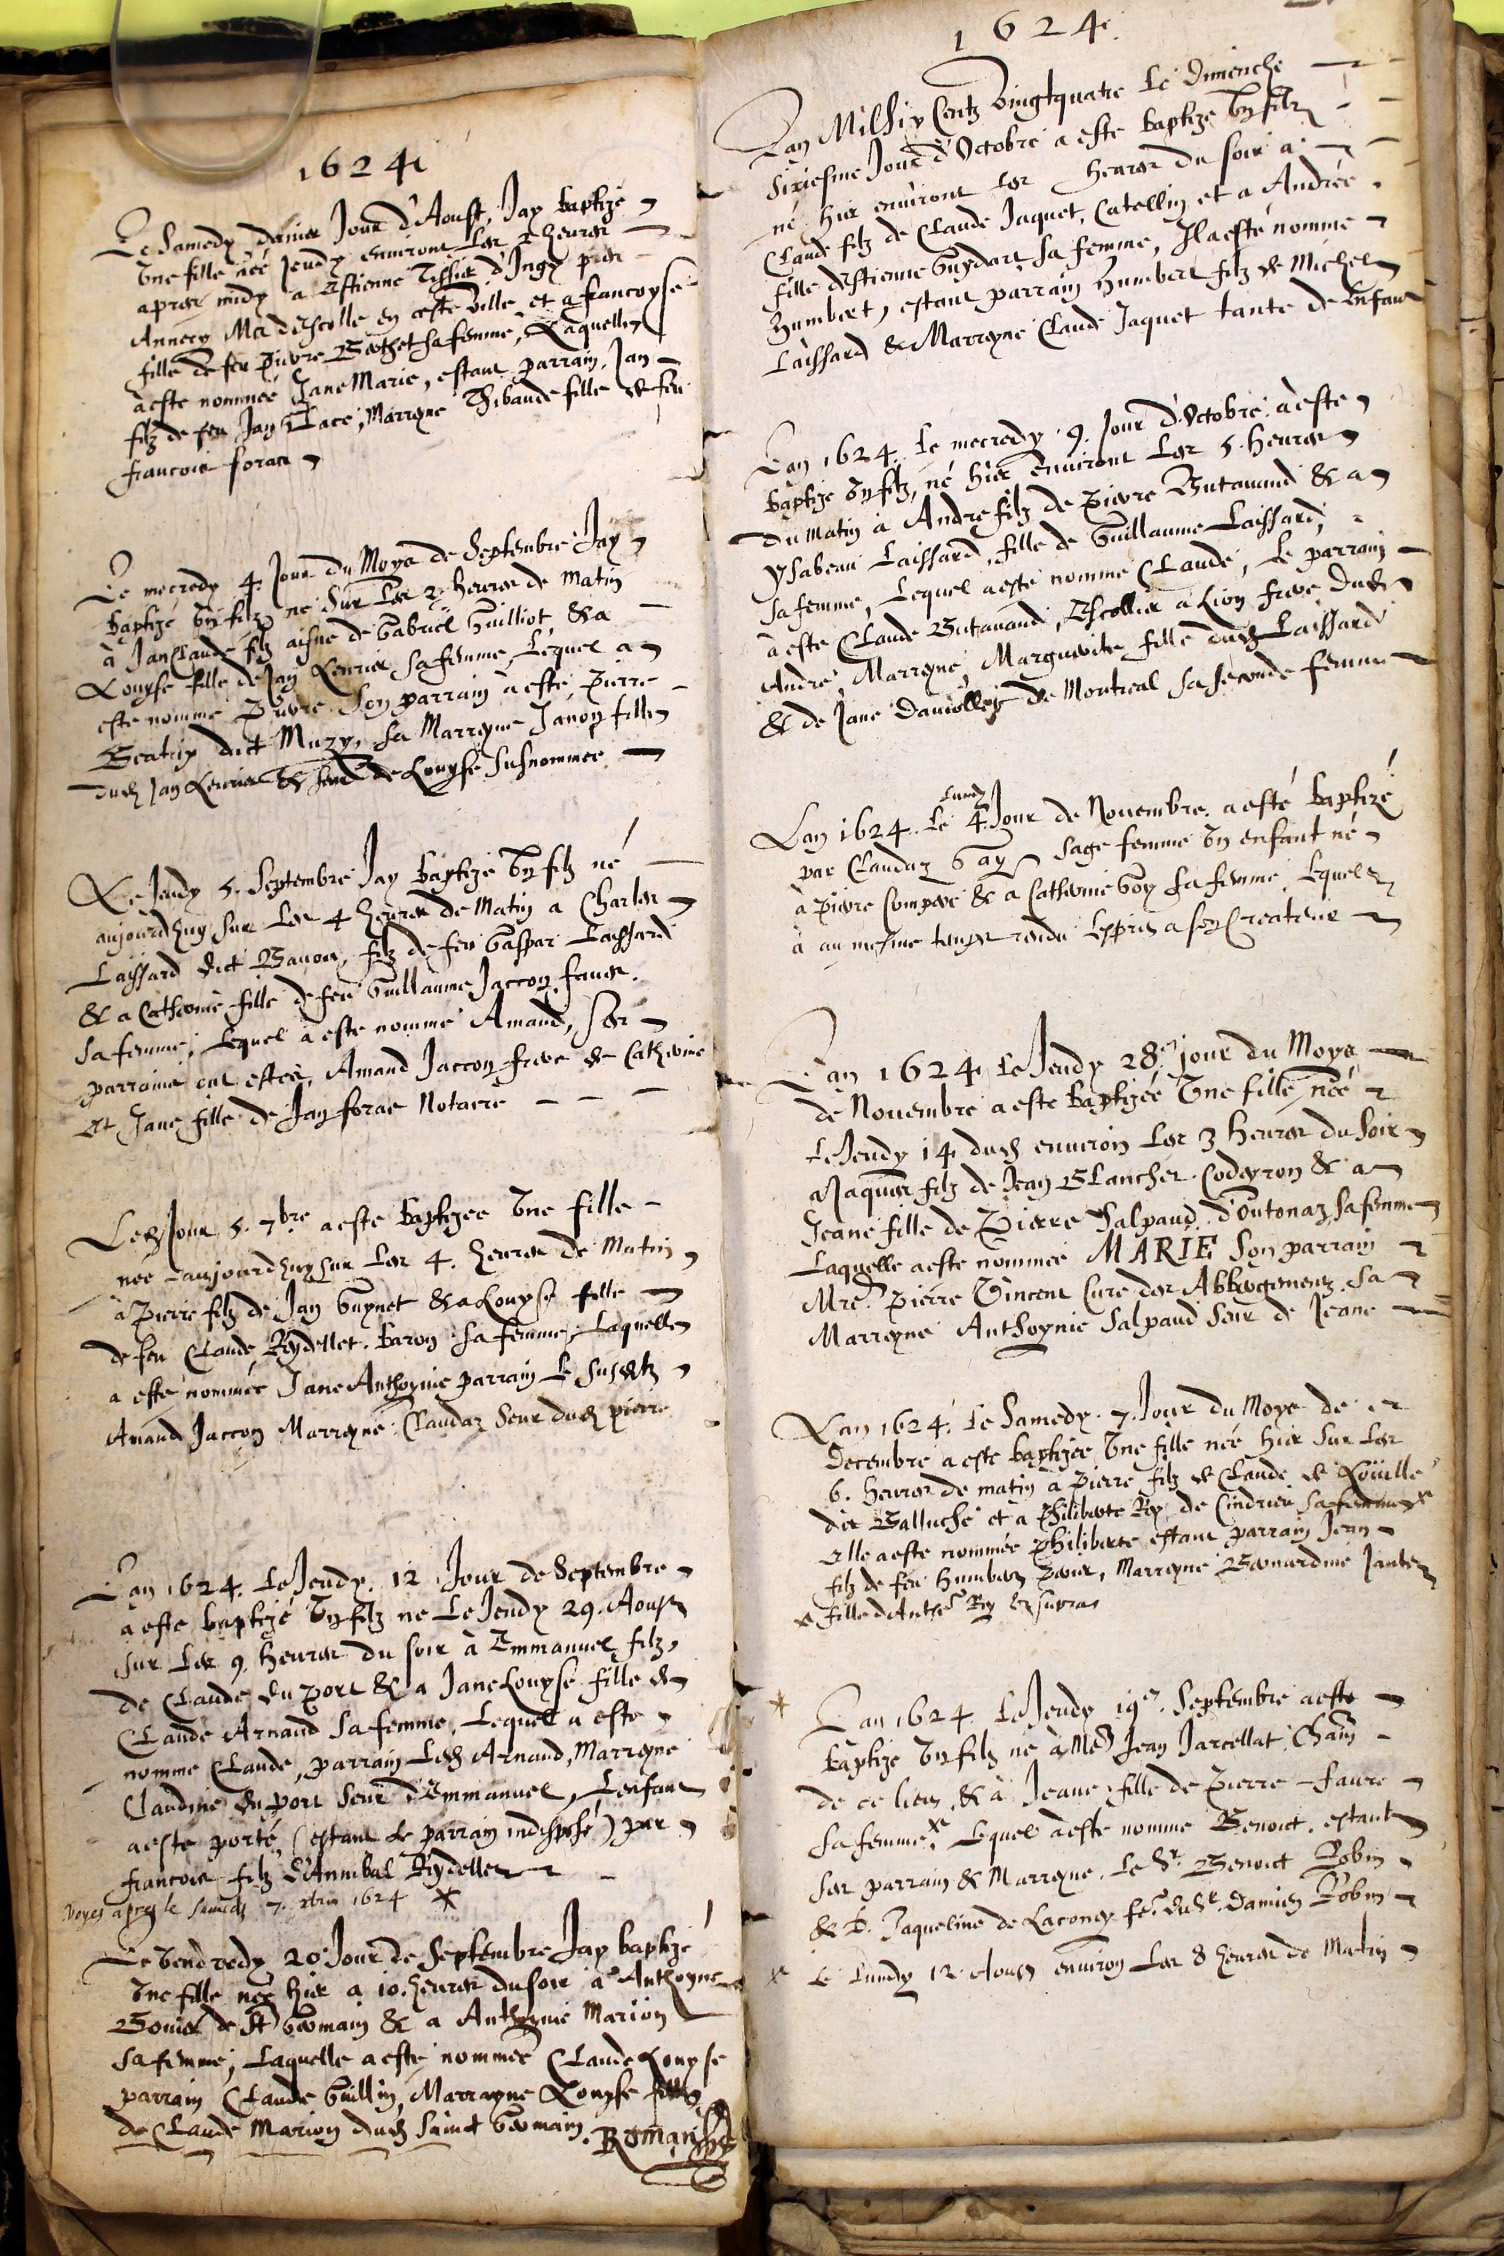 1624
Le Samedy dernier Jour d'Aoust, Jay baptizé
Une fille née Jeudy environt les 2 heures
apres midy a Estienne Tissier d'Ingy pres
Annecy Me d'Escolle en ceste ville et a francoyse
fille de feu Pierre Berthet sa femme, Laquelle
a este nommée Jane Marie, estant parrain, Jan
filz de feu Jan Place, Marreyne Thibaude fille de feu
francois foras
Le mecredy 4 Jour du Moys de Septembre Jay
baptizé Un filz né sur les 2 heures de matin
à Jan Claude filz aisne de Gabriel Guilliot & a
Louyse fille de Jan Levrier sa femme, Lequel a
este nommé Pierre Son parrain a esté, Pierre
dict Muzy, sa Marreyne Janon fille
dud Jan Levrier & seur de Louyse susnommée
Le Jeudy 5. Septembre Jay baptizé Un filz né
aujourdhuy sur les 4 heures de Matin a Charles
Laissard dict filz de feu Gaspar Laissard
& a Catherine fille de feu Guillaume Jaccon
sa femme, Lequel a este nommé Amand, ses
parrains ont estez, Amand Jaccon frere de Catherine
et Jane fille de Jan foras Notaire
Led Jour 5. 7bre a este baptizée Une fille
née aujourdhuy sur les 4. heures de Matin
à Pierre filz de Jan Guynet & a Louyse fille
de feu Claude Reydellet. baron sa femme, Laquelle
a este nommée Jane Anthoynie parrain Le susdit
Amand Jaccon Marreyne Claudaz seur dud pierre
Lan 1624. Le Jeudy. 12 Jour de Septembre
a este baptizé Un filz né Le Jeudy 29. Aoust
sur les 9 heures du soir à Emmanuel filz
de Claude du port & a Jane Louyse fille de
Claude Arnaud sa femme, Lequel a este
nommé Claude, parrain Led Arnaud, Marreyne
Claudine du port seur d'Emmanuel, Lenfant
a este porté (estant le parrain indisposé) par
francois filz d'Annibal Reydellet
Voyes apres le Samedy 7. xbre 1624 *
Le Vendredy 20 Jour de Septembre Jay baptizé
Une fille née hier a 10. heures du soir a Anthoyne
de St Germain & a Anthoynie Marion
sa femme, Laquelle a esté nommée Claude Louyse
parrain Claude Guillin, Marrayne Louyse fille
de Claude Marion dud Sainct Germain. Romand
1624
Lan Mil Six Centz Vingtquatre Le Dimenche
Sixiesme Jour d'Octobre a este baptizé Un filz
né hier environt les heures du soir a
Claude filz de Claude Jaquet, Catellin et a Andrée
fille dEstienne Guydard sa femme, Il a esté nommé
Humbert, estant parrain Humbert filz de Michel
Laissard & Marreyne Claude Jaquet tante de Lenfant
Lan 1624. Le mecredy. 9. Jour d'Octobre. a este
baptizé Un filz, né hier environt les 5. heures
du matin à André filz de Pierre Butavand & a
Ysabeau Laissard, fille de Guillaume Laissard,
sa femme, Lequel a esté nommé Claude, Le parrain
a este Claude Butavand, Escollier a Lion frere dud
André, Marreyne, Marguerite fille dud Laissard
& de Jane de Montreal sa seconde femme
Lundy
Lan 1624. Le 4. Jour de Novembre. a esté baptizé
par Claudaz Gay sage femme Un enfant né
à Pierre Compere & a Catherine Goy sa femme, Lequel
a au mesme temps rendu Lesprit a son Createur
Lan 1624 Le Jeudy 28e jour du Moys
de Novembre a este baptizée Une fille née
Le Jeudy 14 dud environ les 3 heures du soir
a Jaques filz de Jean Blanchet. Codeyron & a
Jeane fille de Pierre Salpaud d'Outonaz sa femme
Laquelle a este nommée MARIE Son parrain
Mre. Pierre Vincent Curé des Abbergementz. sa
Marreyne Anthoynie Salpaud seur de Jeane
Lan 1624. Le Samedy. 7. Jour du Moys de
Decembre a este baptizée Une fille née hier sur les
6. heures de matin à Pierre filz de Claude de
dict Balluche et à Philiberte Rey de Cindrieu sa femme x
elle a este nommée Philiberte estant parrain Jean
filz de feu Humbert marreyne Bernardine
x fille dAnthe Rey ut supra
* Lan 1624 Le Jeudy 19e. Septembre a este
baptizé Un filz né à Me Jean Jarcellat
de ce lieu & à Jeane fille de Pierre Faure
sa femme x Lequel a este nommé Benoict. estant
ses parrain & Marreyne. Le Sr. Benoict Robin
& D. Jaqueline de Laconey fe. du Sr. Damien Robin
x Le Lundy 12 Aoust environ les 8 heures de Matin